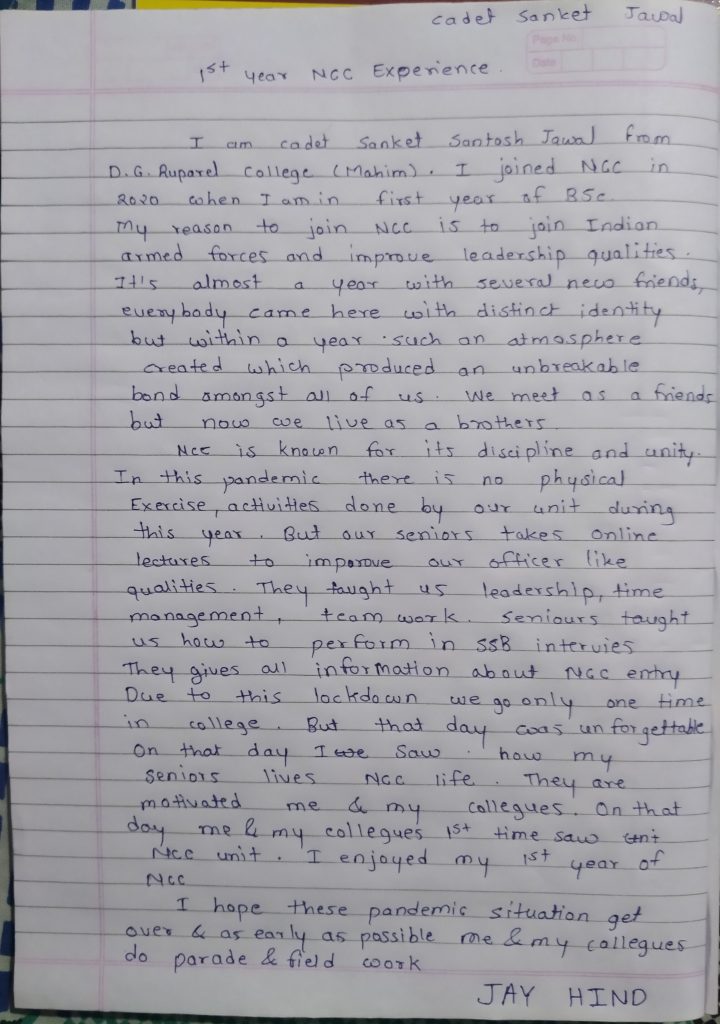 cadet Sanket Jawal
Page No.
Date
1st year NCC Experience.
I am cadet Sanket Santosh Jawal from
D.G. Ruparel College (Mahim). I joined NCC in
2020 when I am in first year of BSc.
My reason to join NCC is to join Indian
armed forces and improve leadership qualities.
It's almost a year with several new friends,
everybody came here with distinct identity
but within a year such an atmosphere
created which produced an unbreakable
bond amongst all of us. We meet as a friends
but now we live as a brothers.
NCC is known for its discipline and unity.
In this pandemic there is no physical
Exercise, activities done by our unit during
this year. But our seniors takes online
lectures to imporove our officer like
qualities. They taught us leadership, time
management, team work. Seniours taught
us how to perform in SSB intervies
They gives all information about NCC entry
Due to this lockdown we go only one time
in college. But that day was unforgettable
On that day I we saw how my
seniors lives NCC life. They are
motivated me & my collegues. On that
day me & my collegues 1st time saw
NCC unit. I enjoyed my 1st year of
NCC
I hope these pandemic situation get
over & as early as possible me & my collegues
do parade & field work
JAY HIND